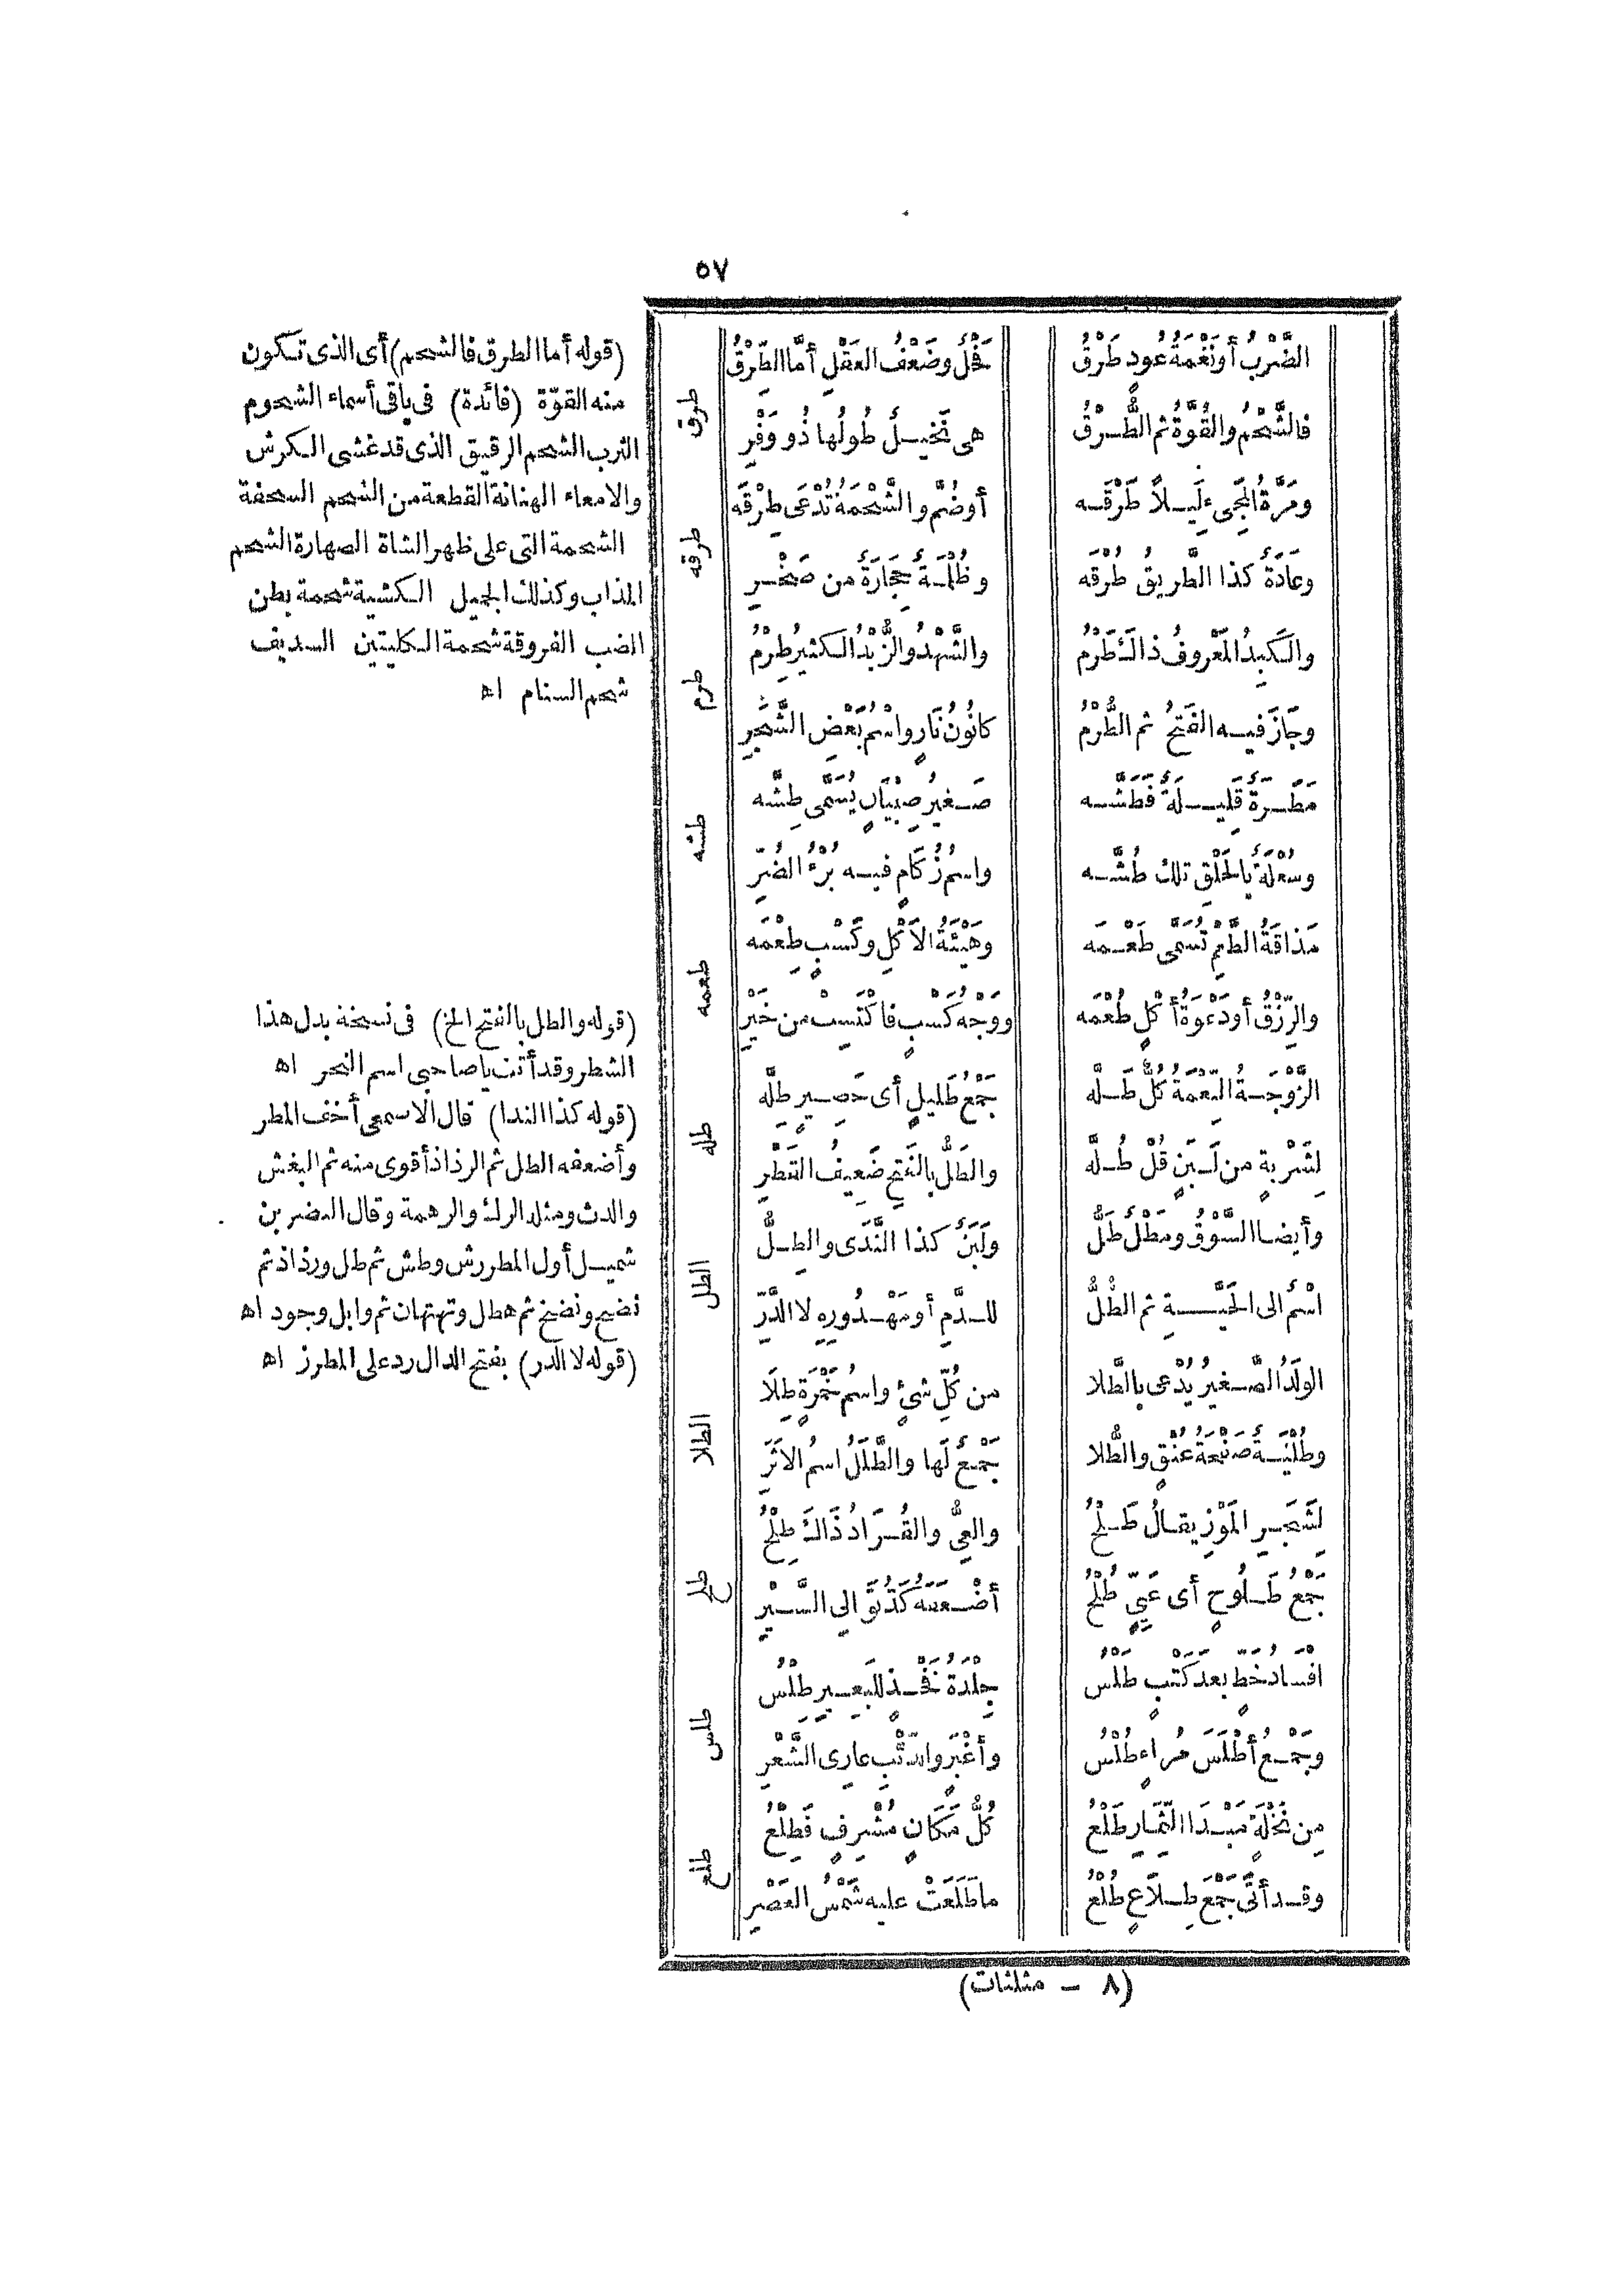 ٥٧
الضَّرْبُ أوَنَغْمَةُ عُودٍ طَرْقُ فَحْلٌ وضَعْفُ العَقْلِ أمَّا الطِّرْقُ
فالشَّحْمُ والقُوَّةُ ثم الطُّرْقُ هى نَخِيلٌ طُولُها ذُو وَفْرِ
طرق
ومَرَّةُ المَجِىءِ لَيلاً طَرْقَه أوضُمَّ والشَّحْمَةُ تُدْعَى طِرْقَه
وعَادَةٌ كذا الطَّرِيقُ طُرْقَه وظُلْمَةٌ حِجَارَةٌ من صَخْرِ
طرقه
والكَبِدُ المَعْرُوفُ ذاكَ طَرْمُ والشَّهْدُ والزُّبْدُ الكثيرُ طِرْمُ
وجَازَ فيه الفَتحُ ثم الطُّرْمُ كانُونُ نَارٍ واسْمُ بَعْضِ الشَّجَرِ
طرم
مَطَرَةٌ قَلِيلَةٌ فَطَشَّه صَغيرُ صِبْيَانٍ يُسَمَّى طِشَّه
وسُعْلَةٌ بالحَلْقِ تلك طُشَّه واسم زُكَامٍ فيه بُرْءُ الضُّرِّ
طشه
مَذاقَةُ الطَّعْمِ تُسَمَّى طَعْمَه وهَيْئَةُ الاَكْلِ وكَسْبٍ طِعْمَه
والرِّزْقُ أودَعْوَةُ أكْلٍ طُعْمَه ووَجْهُ كَسْبٍ فاكْتَسِبْ من خَيْرِ
طعمه
الزَّوْجَةُ النِّعْمَةُ كُلٌّ طَلَّه جَمْعُ طَلِيلٍ أى حَصِيرٍ طِلَّه
لِشَرْبةٍ من لَبَنٍ قُلْ طُلَّه والطَّلُّ بالفَتحِ ضَعِيفُ القَطْرِ
طله
وأيضا السَّوْقُ ومَطْلٌ طَلُّ ولَبَنٌ كذا النَّدَى والطِلُّ
اسْمٌ الى الحَيَّةِ ثم الطُّلُّ للدَّمِ أومَهْدُورِهِ لا الدَّرِّ
الطل
الولَدُ الصَّغيرُ يُدْعى بالطَّلا من كُلِّ شئٍ واسمُ خَمْرَةٍ طِلَا
وطُلْيَةٌ صَفْحَةُ عُنْقٍ والطُّلا جَمْعٌ لَها والطَّلَلُ اسمُ الاَثَرِ
الطلا
لِشَجَرِ المَوْزِ يقالُ طَلْحُ والعِىُّ والقُرَادُ ذَاكَ طِلْحُ
جَمْعُ طَلُوحٍ أى عَيِىٍّ طُلْحُ أضْعَفَهُ كَدُّ نَوَالى السَّيْرِ
طلح
افْسَادُ خَطٍّ بعدَ كَتْبٍ طَلْسُ جِلْدَةُ فَخْذٍ للبَعِيرِ طِلْسُ
وجَمْعُ أطْلَسَ مُرَاءٍ طُلْسُ وأغْبَرٍ والذِّئْبِ عارِى الشَّعْرِ
طلس
مِن نَخْلَةٍ مَبْدَا الثِّمَارِ طَلْعُ كُلُّ مَكَانٍ مُشْرِفٍ فَطِلْعُ
وقد أتَى جَمْعَ طِلَاعٍ طُلْعُ ما طَلَعَتْ عليه شَمْسُ العَصْرِ
طلع
(قوله أما الطرق فالشحم) أى الذى تكون
منه القوّة (فائدة) فى باقى أسماء الشحوم
الثرب الشحم الرقيق الذى قد غشى الكرش
والامعاء الهنانة القطعة من الشحم السحفة
الشحمة التى على ظهر الشاة الصهارة الشحم
المذاب وكذلك الجميل الكشية شحمة بطن
الضب الفروقة شحمة الكليتين السديف
شحم السنام اه
(قوله والطل بالفتح الخ) فى نسخة بدل هذا
الشطر وقد أتت ياصاحبى اسم النحر اه
(قوله كذا الندا) قال الاصمعى أخف المطر
وأضعفه الطل ثم الرذاذ أقوى منه ثم البغش
والدث ومثله الرك والرهمة وقال النضر بن
شميل أول المطر رش وطش ثم طل ورذاذ ثم
نضح ونضخ ثم هطل وتهتهان ثم وابل وجود اه
(قوله لا الدر) بفتح الدال رد على المطرز اه
(٨ – مثلثات)